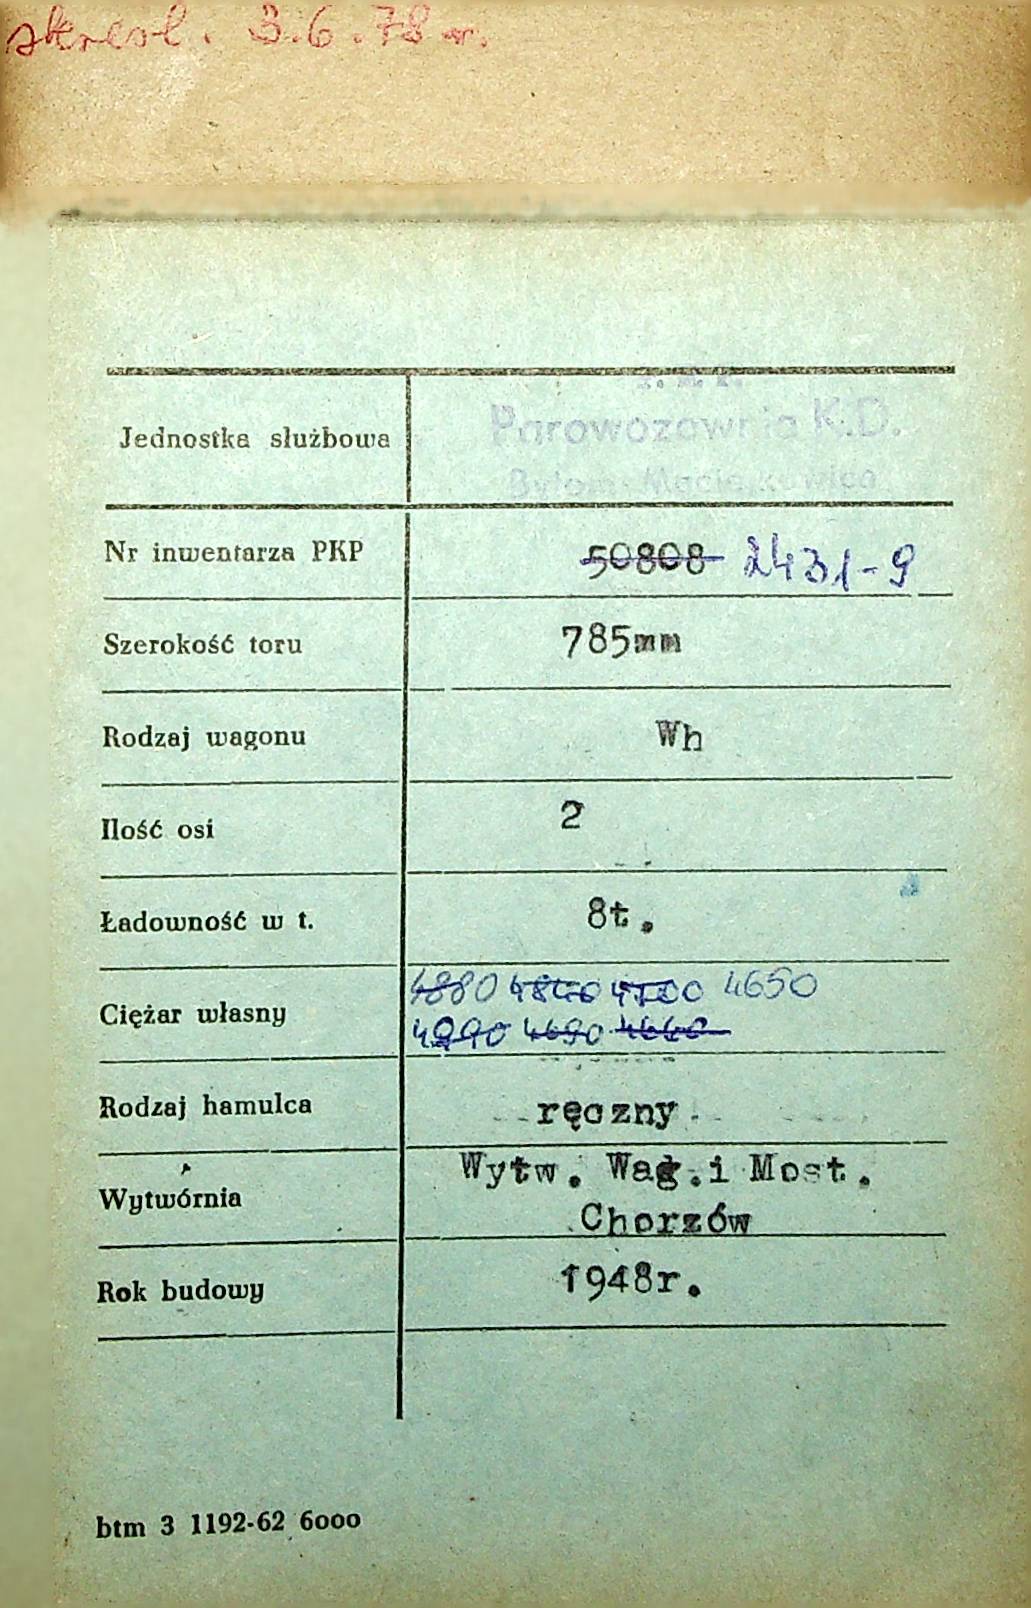 skreśl. 3.6.78 r.
Jednostka służbowa
Parowozownia K.D.
Bytom
Nr inwentarza PKP 50808 2431-9
Szerokość toru 785mm
Rodzaj wagonu Wh
Ilość osi 2
Ładowność w t. 8t.
Ciężar własny 4880 4840 4700 4650
4690
Rodzaj hamulca ręczny
Wytwórnia Wytw. Wag.i Most.
Chorzów
Rok budowy 1948r.
btm 3 1192-62 6000